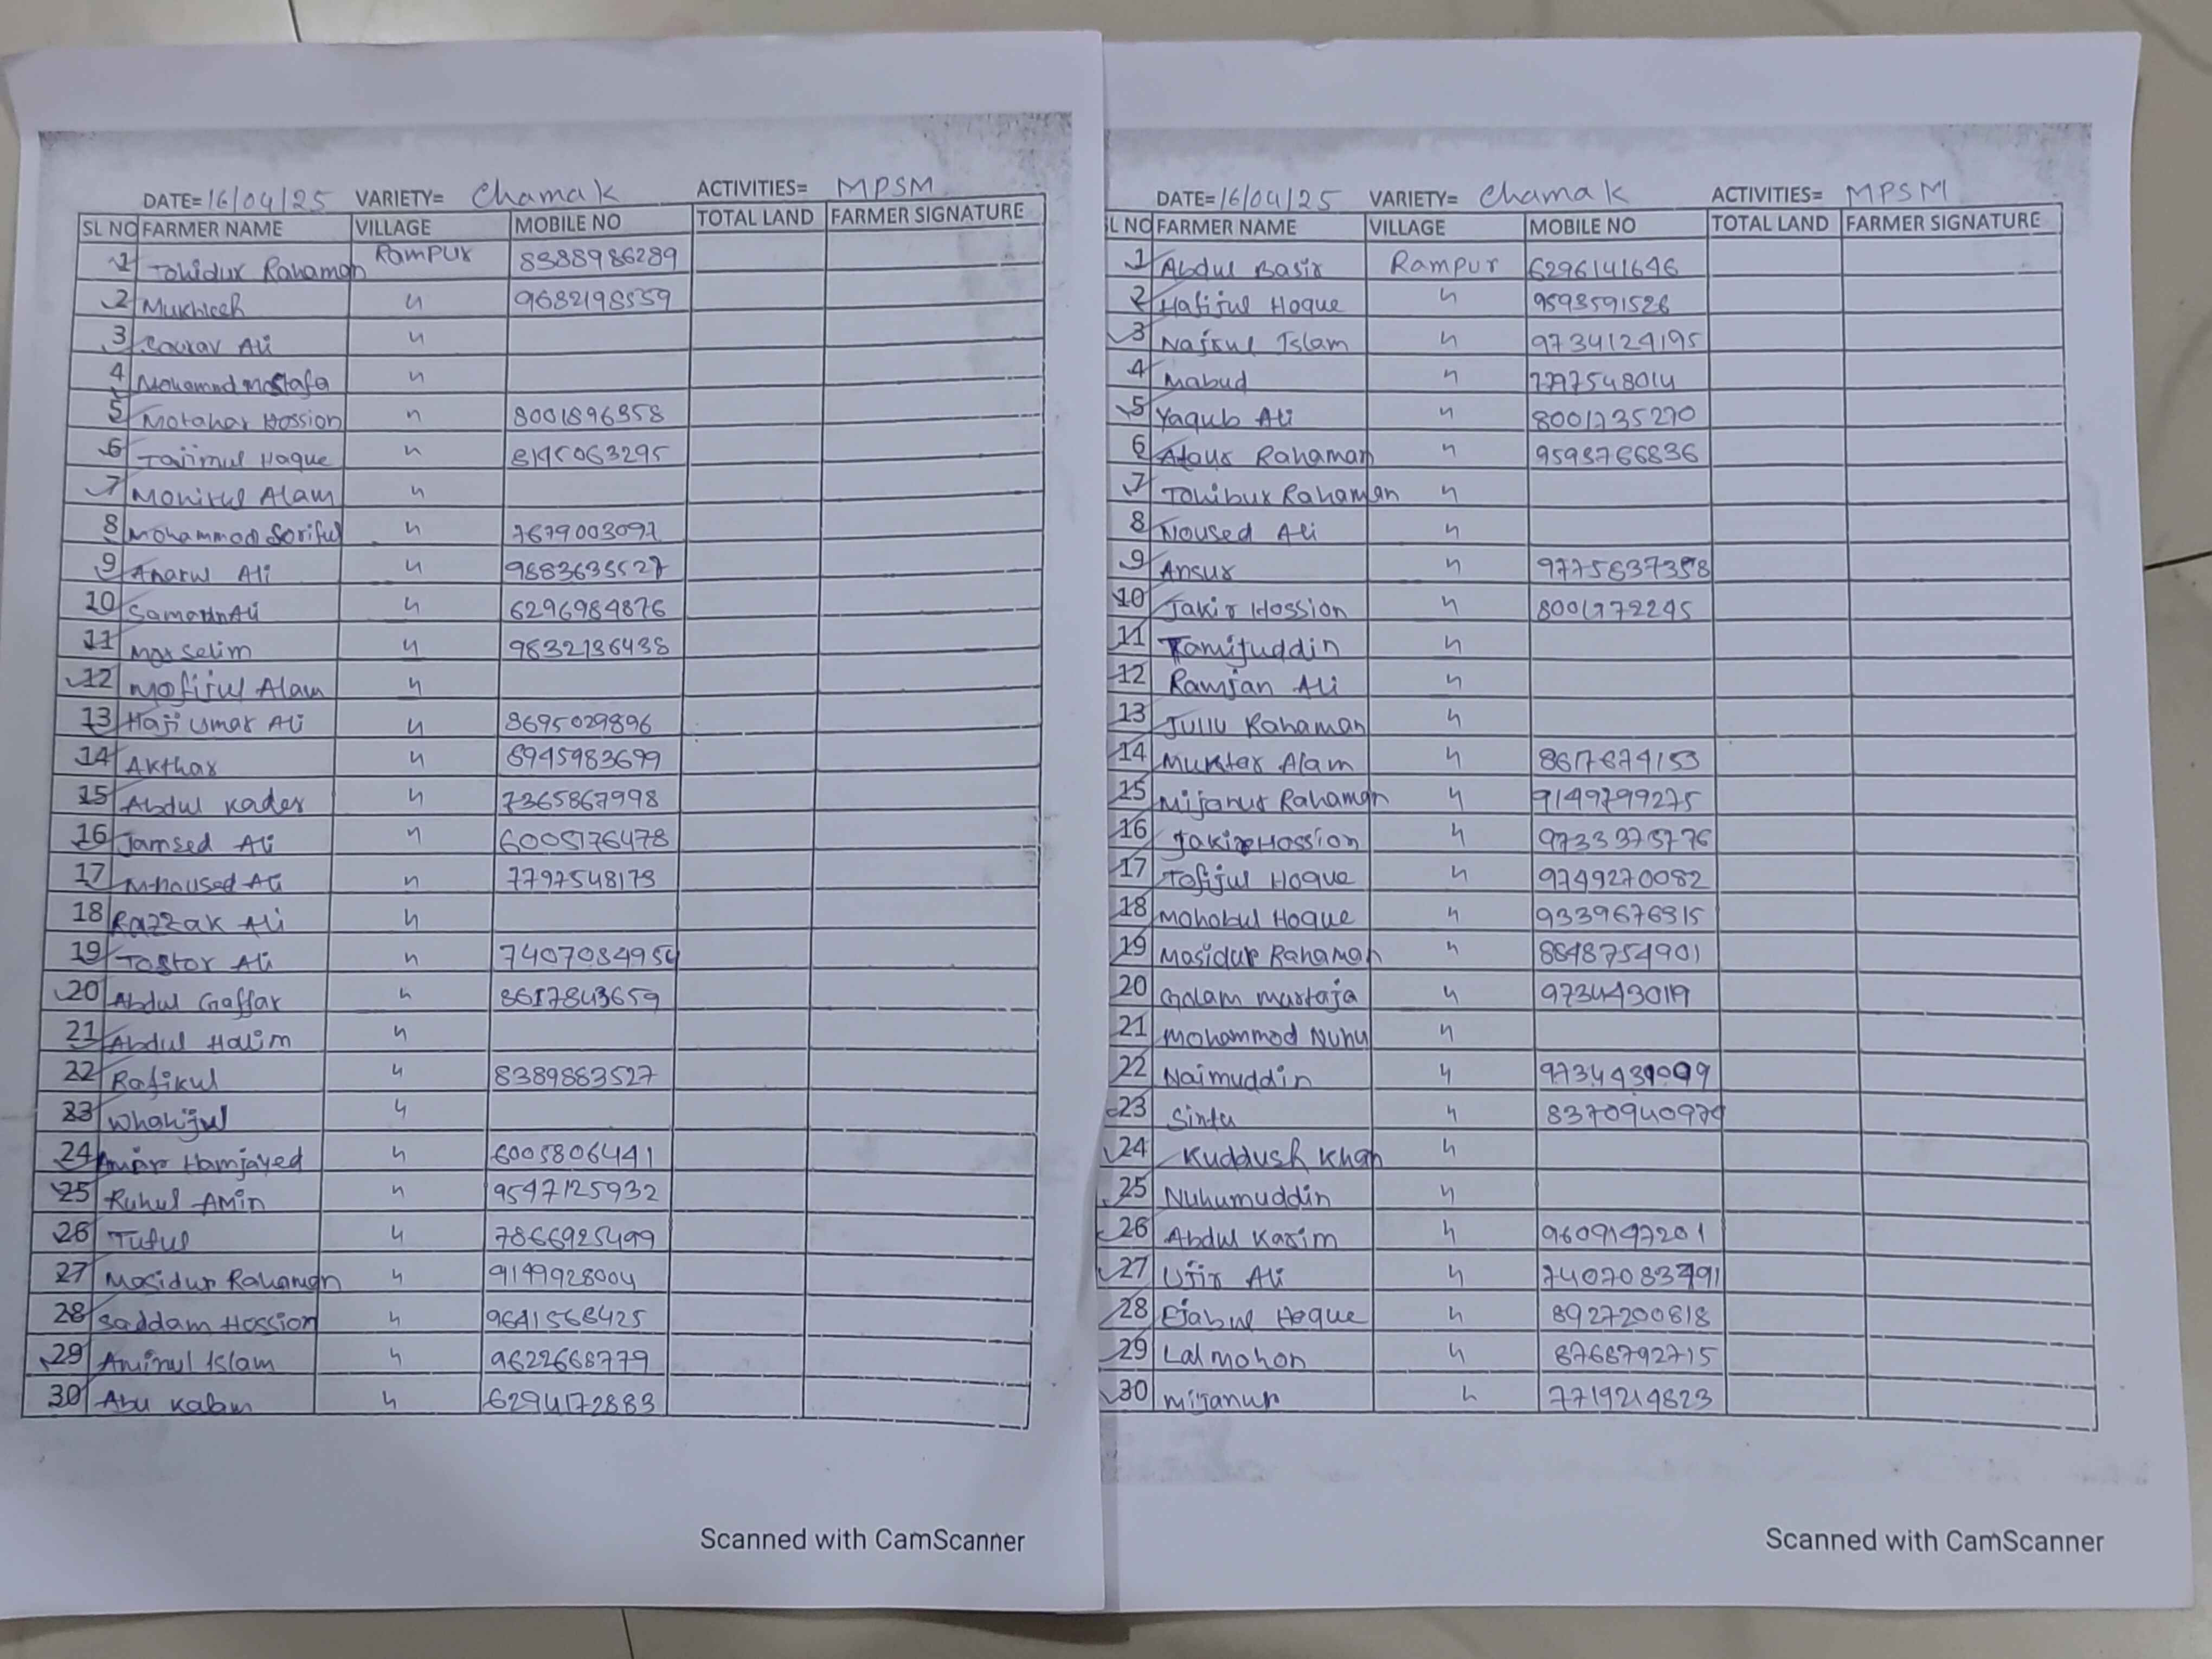 DATE= 16/04/25 VARIETY= Chamak ACTIVITIES= MPSM
SL NO FARMER NAME VILLAGE MOBILE NO TOTAL LAND FARMER SIGNATURE
1 Tohidur Rahaman Rampur 8388986289
2 Mukhleh 〃 9682198559
3 Sourav Ali 〃
4 Mohammd Mostafa 〃
5 Motahar Hossion 〃 8001896358
6 Tajimul Haque 〃 8145063295
7 Monirul Alam 〃
8 Mohammod Soriful 〃 7679003097
9 Anarul Ali 〃 9883635527
10 Samaun Ali 〃 6296984876
11 Mar Selim 〃 9832136438
12 Mofijul Alam 〃
13 Haji Umar Ali 〃 8695029896
14 Akthar 〃 8945983699
15 Abdul Kader 〃 7365867998
16 Jamsed Ali 〃 6005176478
17 M-noused Ali 〃 7797548173
18 Razzak Ali 〃
19 Tostor Ali 〃 7407084954
20 Abdul Gaffar 〃 8617843659
21 Abdul Halim 〃
22 Rafikul 〃 8389883527
23 Whahijul 〃
24 Hamjayed 〃 6005806441
25 Ruhul Amin 〃 9547125932
26 Tutul 〃 7866925499
27 Mosidur Rahaman 〃 9149928004
28 Saddam Hossion 〃 9641568425
29 Aminul Islam 〃 9622668779
30 Abu Kalam 〃 6294172883
Scanned with CamScanner
DATE= 16/04/25 VARIETY= Chamak ACTIVITIES= MPSM
SL NO FARMER NAME VILLAGE MOBILE NO TOTAL LAND FARMER SIGNATURE
1 Abdul Basir Rampur 6296141646
2 Hafijul Hoque 〃 9593591526
3 Najrul Islam 〃 9734124195
4 Mabud 〃 7797548014
5 Yaqub Ali 〃 8001735270
6 Ataur Rahaman 〃 9593766836
7 Tohibur Rahaman 〃
8 Noused Ali 〃
9 Ansur 〃 9775637358
10 Jakir Hossion 〃 8001772245
11 Tamijuddin 〃
12 Ramjan Ali 〃
13 Jullu Rahaman 〃
14 Muktar Alam 〃 8617674153
15 Mijanur Rahaman 〃 9149799275
16 Jakir Hossion 〃 9733375776
17 Tofijul Hoque 〃 9749270082
18 Mohobul Hoque 〃 9339676315
19 Mosidur Rahaman 〃 8848754901
20 Golam Murtaja 〃 973443019
21 Mohammod Nuhu 〃
22 Naimuddin 〃 9734439099
23 Sintu 〃 8370940979
24 Kuddush Khan 〃
25 Nuhumuddin 〃
26 Abdul Karim 〃 9609197201
27 Ujir Ali 〃 7407083791
28 Ejabul Hoque 〃 8927200818
29 Lal mohon 〃 8768792715
30 Mijanur 〃 7719219823
Scanned with CamScanner